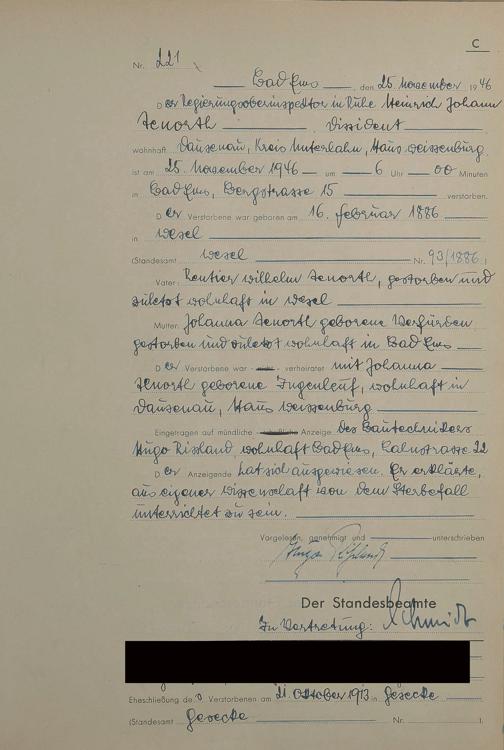 C
Nr. 221
Bad Ems, den 25. November 1946
Der Regierungsoberinspektor in Ruhe Heinrich Johann
Tenorth, Dissident
wohnhaft Dausenau, Kreis Unterlahn, Haus Weissenburg
ist am 25. November 1946 um 6 Uhr 00 Minuten
in Bad Ems, Bergstrasse 15 verstorben.
Der Verstorbene war geboren am 16. Februar 1886
in Wesel
(Standesamt Wesel Nr. 93/1886)
Vater: Rentier Wilhelm Tenorth, gestorben und
zuletzt wohnhaft in Wesel
Mutter: Johanna Tenorth geborene Verfürden
gestorben und zuletzt wohnhaft in Bad Ems
Der Verstorbene war verheiratet mit Johanna
Tenorth geborene Jugenleuf, wohnhaft in
Dausenau, Haus Weissenburg
Eingetragen auf mündliche Anzeige des Bautechnikers
Hugo Rissland, wohnhaft Bad Ems, Lahnstrasse 22
Der Anzeigende hat sich ausgewiesen. Er erklärte,
aus eigener Wissenschaft von dem Sterbefall
unterrichtet zu sein.
Vorgelesen, genehmigt und unterschrieben
Hugo Rissland
Der Standesbeamte
In Vertretung: Schmidt
Eheschließung des Verstorbenen am 21. Oktober 1913 in Geseke
(Standesamt Geseke Nr. ).